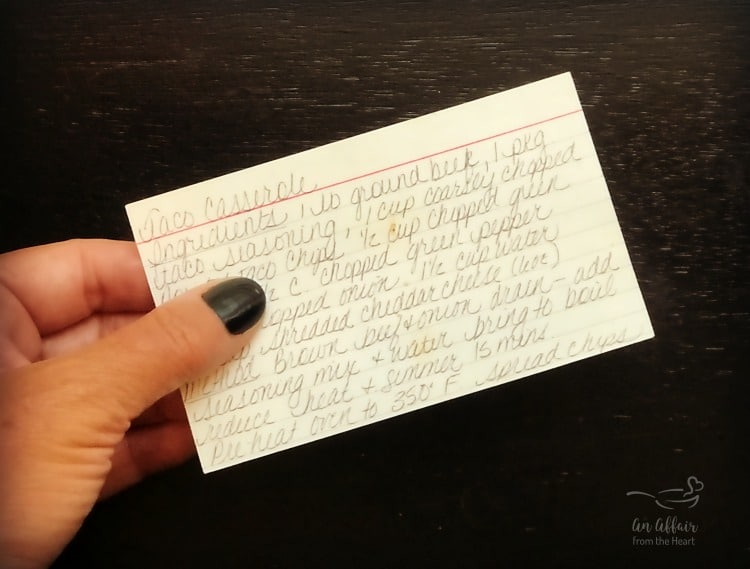 Taco Casserole
Ingredients 1 lb ground beef, 1 pkg
taco seasoning, 1 cup coarsely chopped
taco chips, 1/2 cup chopped green
c chopped green pepper
chopped onion, 1 1/2 cup water
shredded cheddar cheese (6oz)
Method Brown beef & onion drain - add
seasoning mix & water bring to boil
reduce heat & simmer 15 mins.
Pre heat oven to 350° F spread chips
An Affair
from the Heart